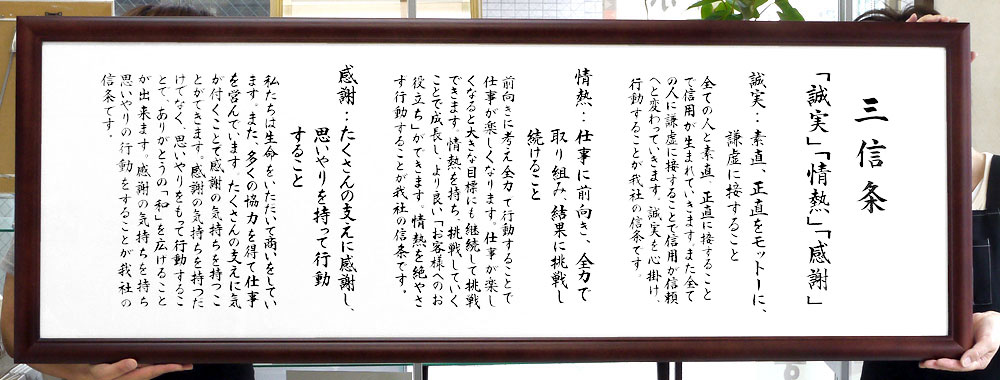 三信条
「誠実」「情熱」「感謝」
誠実…素直、正直をモットーに、
謙虚に接すること
全ての人と素直、正直に接すること
で信用が生まれていきます。また全て
の人に謙虚に接することで信用が信頼
へと変わっていきます。誠実を心掛け、
行動することが我社の信条です。
情熱…仕事に前向き、全力で
取り組み、結果に挑戦し
続けること
前向きに考え全力で行動することで
仕事が楽しくなります。仕事が楽し
くなると大きな目標にも継続して挑戦
できます。情熱を持ち、挑戦していく
ことで成長し、より良い「お客様へのお
役立ち」ができます。情熱を絶やさ
す行動することが我社の信条です。
感謝…たくさんの支えに感謝し、
思いやりを持って行動
すること
私たちは生命をいただいて商いをしてい
ます。また、多くの協力を得て仕事
を営んでいます。たくさんの支えに気
が付くことで感謝の気持ちを持つこ
とができます。感謝の気持ちを持つた
けでなく、思いやりをもって行動するこ
とで、ありがとうの「和」を広げること
が出来ます。感謝の気持ちを持ち
思いやりの行動をすることが我社の
信条です。